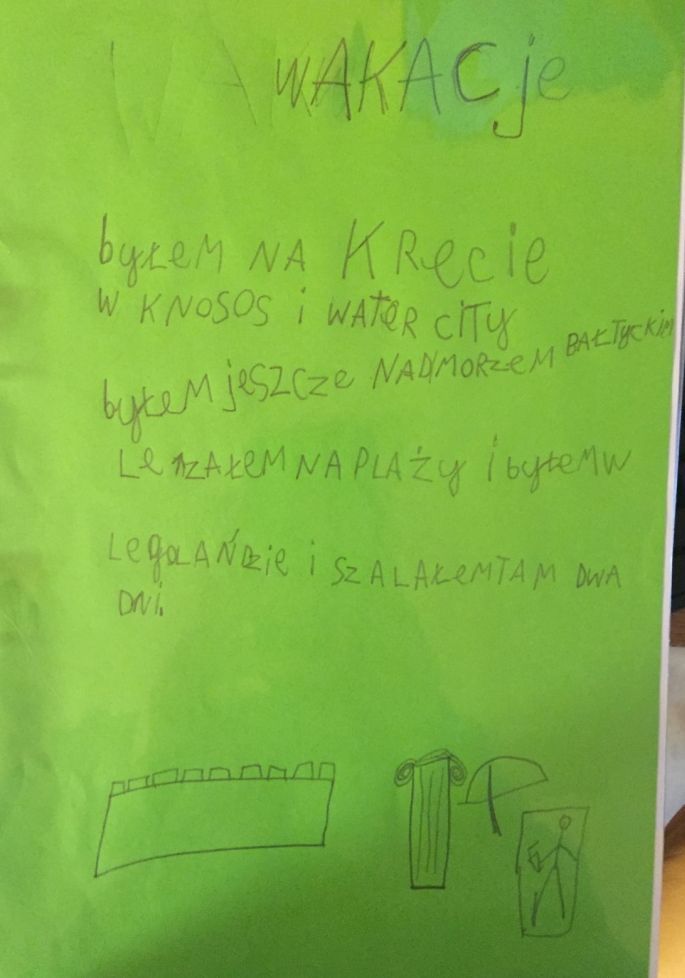 WAKACje
byłem NA KRęcie
W KNOSOS i WATeR CITY
byłem jeszcze NADMORZEM BAŁTYCKIM
LeżAłem NA PLAŻy i byłem W
LegoLAŃDzie i SZALAŁEM TAM DWA
DNi.